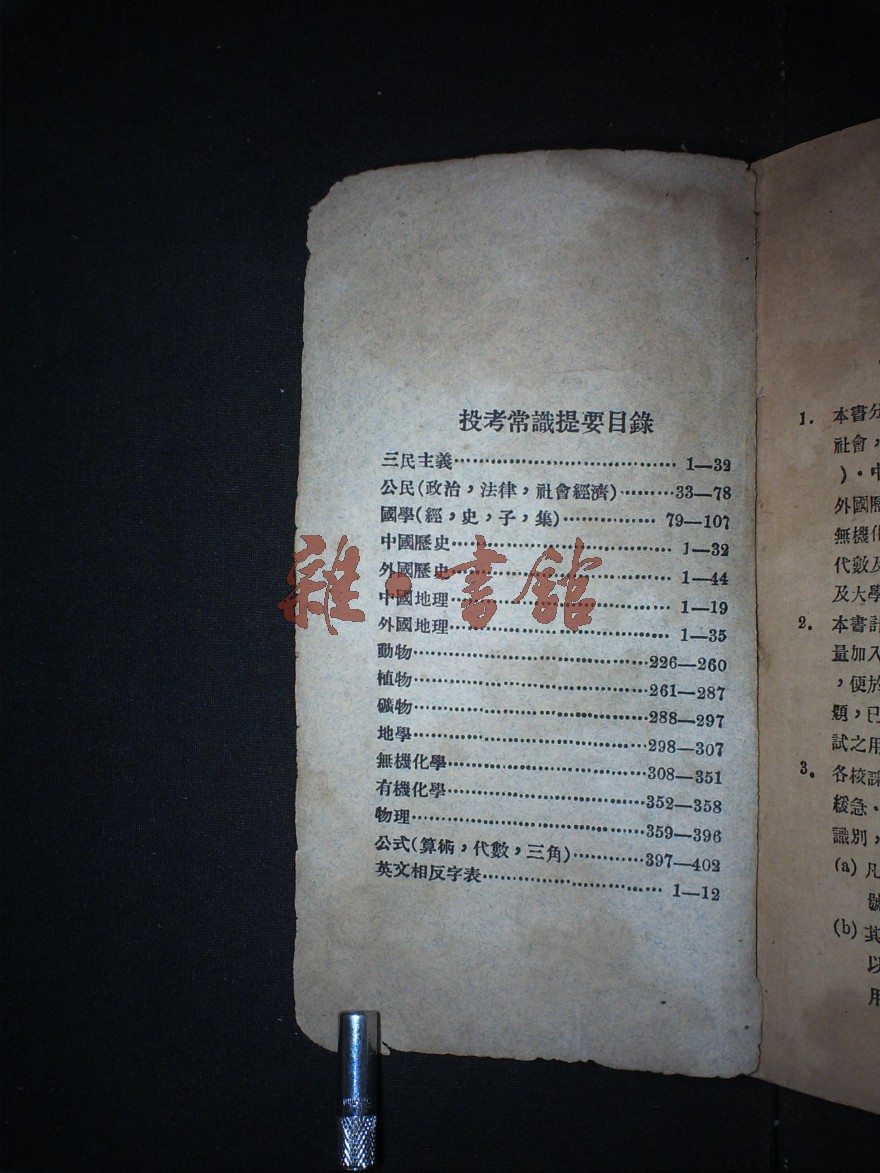 投考常識提要目錄
三民主義·································· 1—32
公民(政治，法律，社會經濟)·········33—78
國學(經，史，子，集)·············· 79—107
中國歷史·································· 1—32
外國歷史·································· 1—44
中國地理·································· 1—19
外國地理·································· 1—35
動物····································226—260
植物····································261—287
礦物····································288—297
地學····································298—307
無機化學······························308—351
有機化學······························352—358
物理····································359—396
公式(算術，代數，三角)···········397—402
英文相反字表···························· 1—12
雜·書館
1. 本書分
社會，
)。中
外國歷
無機化
代數及
及大學
2. 本書計
量加入
，便於
題，已
試之用
3. 各校課
緩急。
識別，
(a) 凡
號
(b) 其
以
用